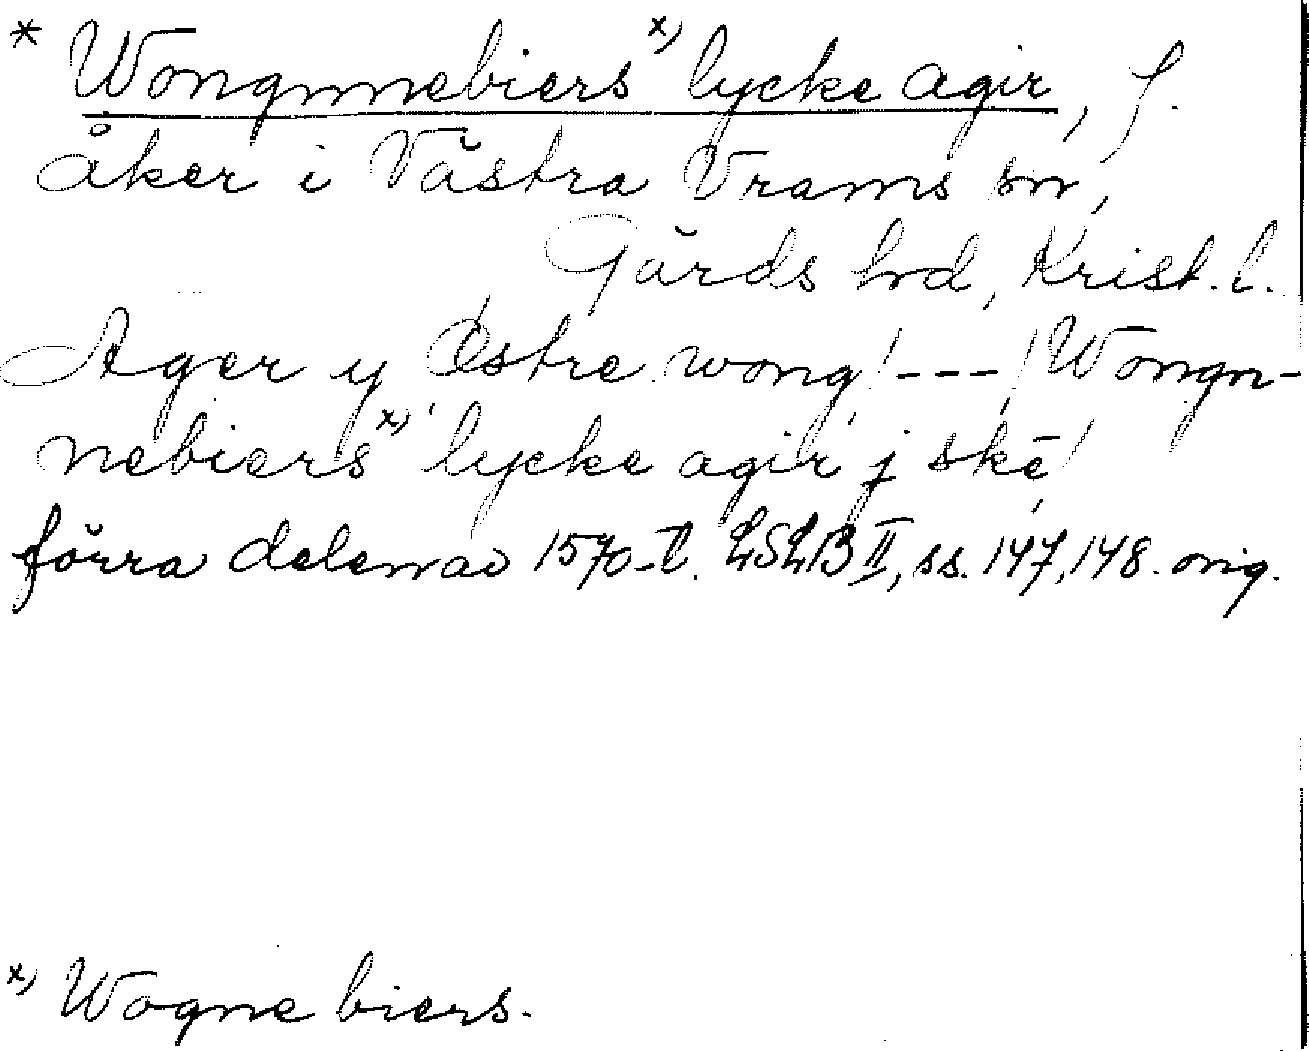 * Wongnnebiers x) lycke agir, f.
åker i Västra Vrams sn,
Gärds hd, Krist. l.
Ager y Østre wong / --- / Wongn-
nebiers x) lycke agir j skē /
förra delen av 1570-t. LSLB II, ss. 147, 148. orig.
x) Wogne biers.